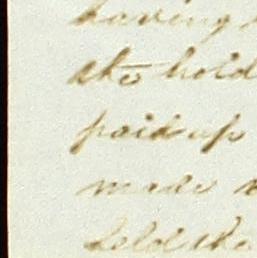 having
the hold
paid up
made
held the